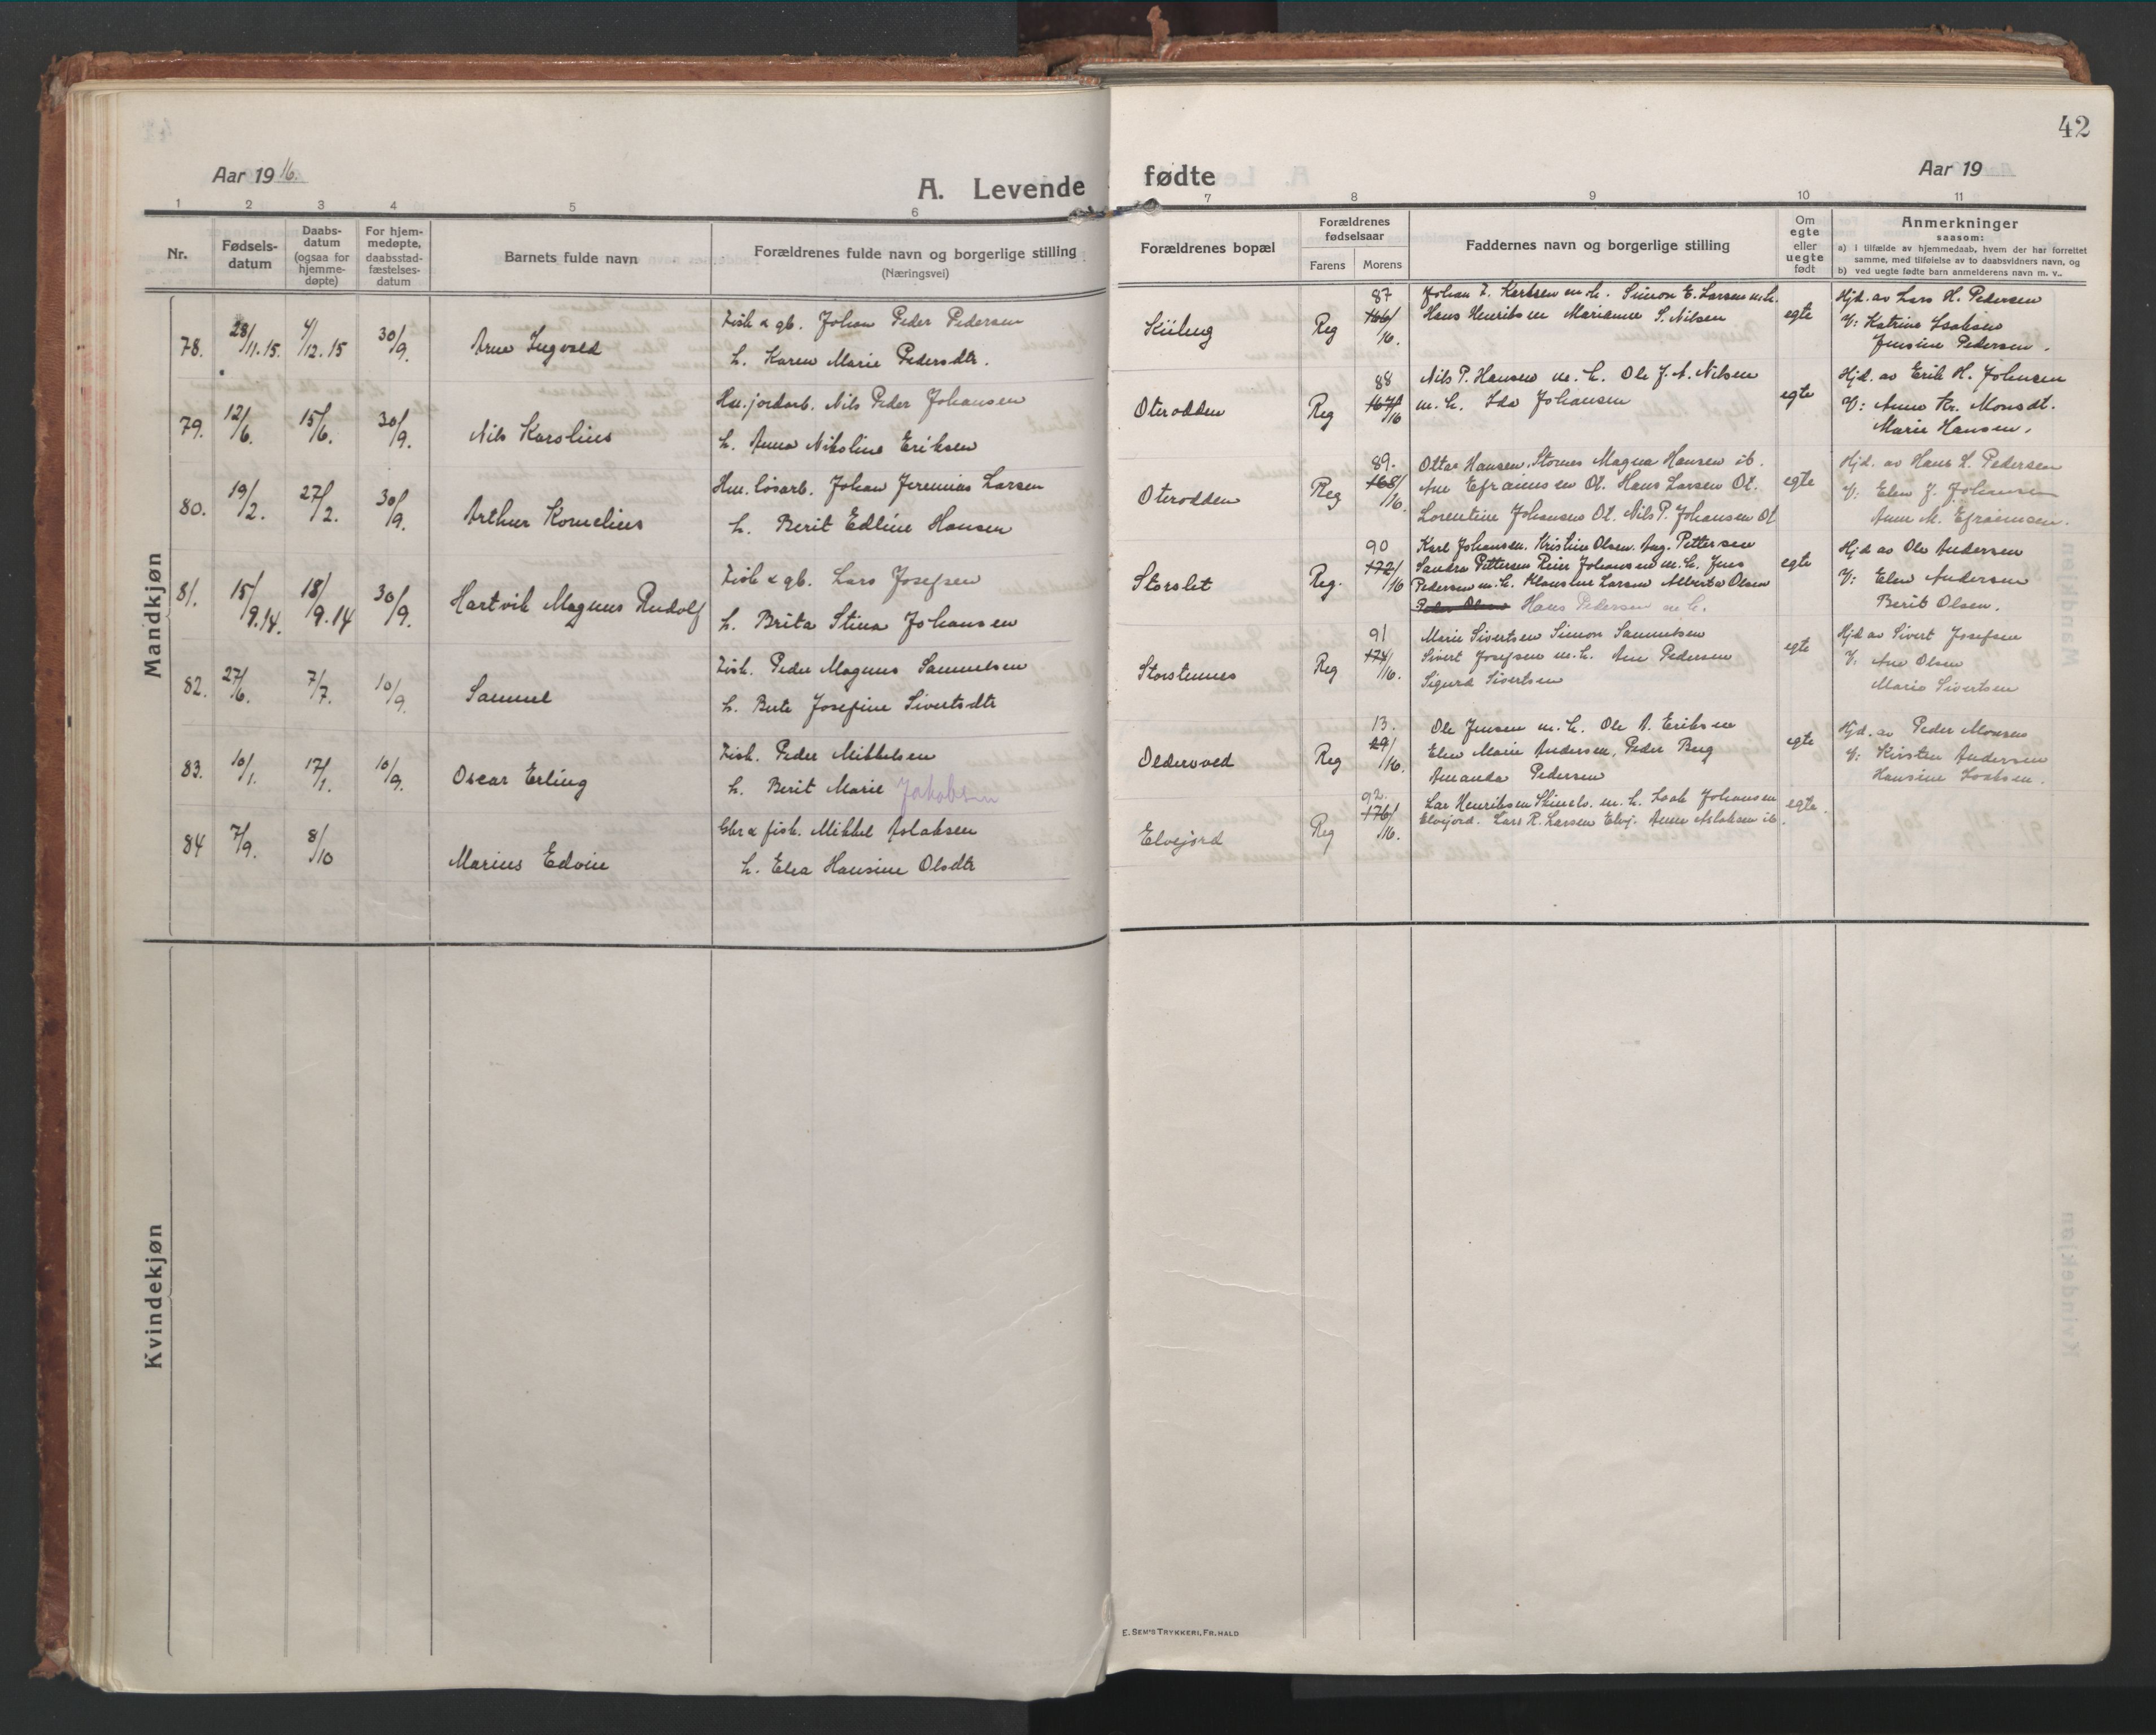 42
Aar 19 16.
A. Levende
fødte
Aar 19
1 2 3 4 5 6 7 8 9 10 11
Nr.
Fødsels-
datum
Daabs-
datum
(ogsaa for
hjemme-
døpte)
For hjem-
medøpte,
daabsstad-
fæstelses-
datum
Barnets fulde navn
Forældrenes fulde navn og borgerlige stilling
(Næringsvei)
Forældrenes bopæl
Forældrenes
fødselsaar
Farens Morens
Faddernes navn og borgerlige stilling
Om
egte
eller
uegte
født
Anmerkninger
saasom:
a) i tilfælde av hjemmedaab, hvem der har forrettet
samme, med tilføielse av to daabsvidners navn, og
b) ved uegte fødte barn anmelderens navn m. v..
Mandkjøn
78. 28/11.15. 4/12.15 30/9. Arne Ingvald
Fisk & gb. Johan Peder Pedersen
h. Karen Marie Pedersdtr.
Reg
87
166/16.
Johan L. Karlsen m. h. Simon E. Larsen m. h.
Hans Henriksen Marianne S. Nilsen
egte
Hjd. av Lars H. Pedersen
V: Katrine Isaksen
Jensine Pedersen.
79. 12/6. 15/6. 30/9. Nils Karolius
Hm. jordarb. Nils Peder Johansen
h. Anna Nikoline Eriksen
Oterodden
Reg
88
167/16
Nils P. Hansen m. h. Ole J. A. Nilsen
m. h. Ida Johansen
egte
Hjd. av Erik H. Johnsen
V: Anne Kr. Monsdt.
Marie Hansen.
80. 19/2. 27/2. 30/9. Arthur Kornelius
Hm. løsarb. Johan Jeremias Larsen
h. Berit Edline Hansen
Oterodden
Reg
89.
168/16.
Ottar Hansen, Stornes Magna Hansen ib.
Ane Efraimsen Ot. Hans Larsen Ot.
Lorentine Johansen Ot. Nils P. Johansen Ot
egte
Hjd. av Hans L. Pedersen
V: Elen J. Johansen
Anne M. Efraimsen.
81. 15/9.14. 18/9.14 30/9. Hartvik Magnus Rudolf
Fisk & gb. Lars Josefsen
h. Brita Stina Johansen
Storslet
Reg.
90
172/16
Karl Johansen. Kristine Olsen. Aug. Pettersen
Sandra Pettersen Peier Johansen m. h. Jens
Pedersen m. h. Klausine Larsen Alberta Olsen
Peder Olsen Hans Pedersen m. h.
egte
Hjd av Ole Andersen
V: Elen Andersen
Berit Olsen.
82. 27/6. 7/7. 10/9. Samuel
Fisk. Peder Magnus Samuelsen
h. Berte Josefine Sivertsdtr
Storstennes
Reg
91
174/16.
Marie Sivertsen Simon Samuelsen
Sivert Josefsen m. h. Ane Pedersen
Sigurd Sivertsen
egte
Hjd av Sivert Josefsen
V. Ane Olsen
Marie Sivertsen
83. 10/1. 17/1. 10/9. Oscar Erling
Fisk. Peder Mikkelsen
h. Berit Marie Jakobsen
Reg
13.
29/16.
Ole Jensen m. h. Ole A. Eriksen
Elen Marie Andersen, Peder Berg
Amanda Pedersen
egte
Hjd. av Peder Monsen
V: Kirsten Andersen
Hansine Isaksen.
84 7/9. 8/10 Marius Edvin
Gbr & fisk. Mikkel Aslaksen
h. Elea Hansine Olsdtr
Elvejord
Reg
92.
176/16.
Lar Henriksen Skinelv. m. h. Isak Johansen
Elvejord. Lars R. Larsen Elvj. Anne Aslaksen ib.
egte.
Kvindekjøn
E. SEM'S TRYKKERI, FR. HALD